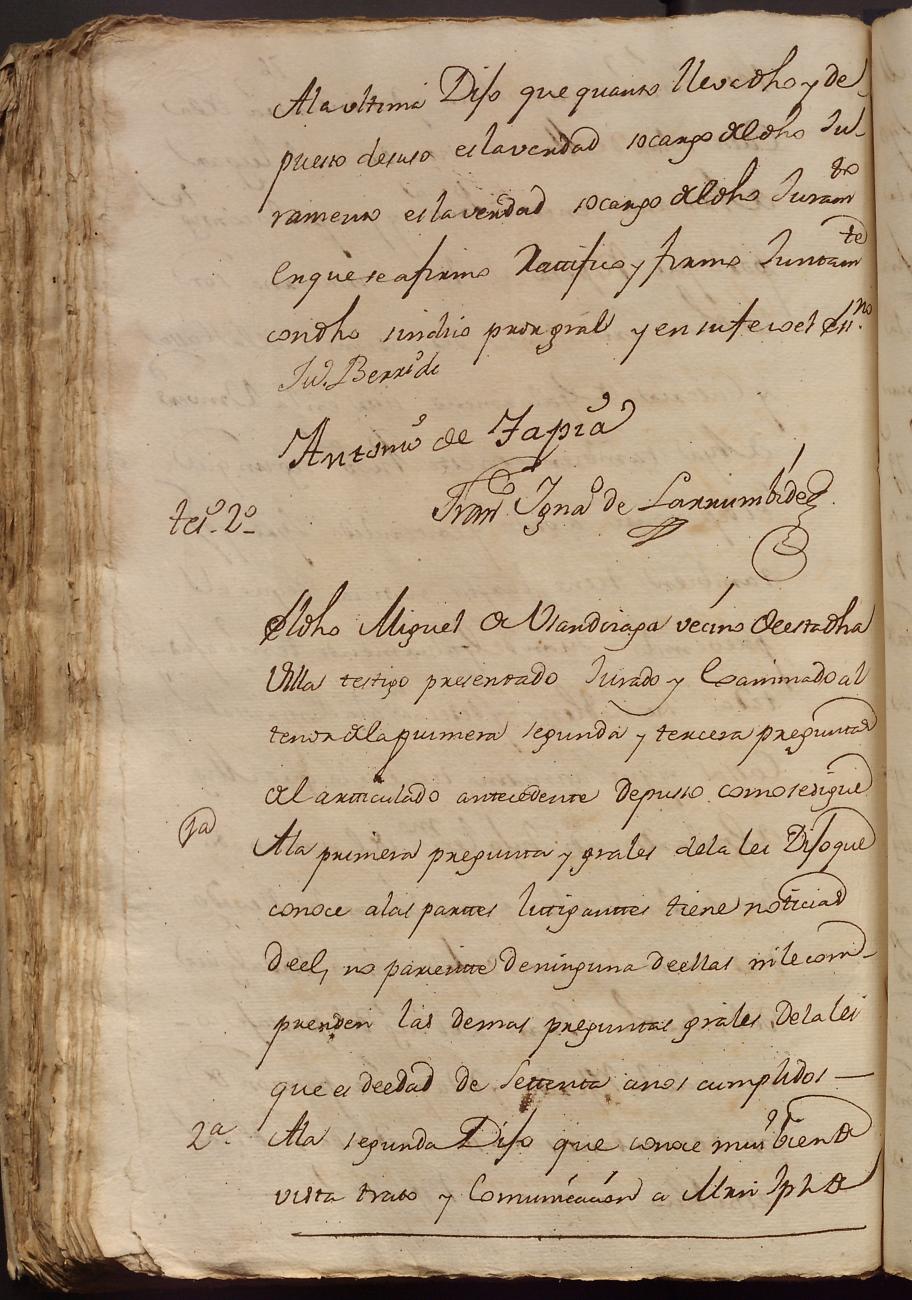 A la vltima Dijo que quanto lleva dho y de
puesto desuso es la verdad so cargo del dho Ju
ramento es la verdad so cargo del dho Juramto
en que se afirmo Ratifico y firmo Juntamte
con dho sindico pror gral y en su fe io el Essno
Antonio de Tapia
Franco Ignao de Larrumbide
tesº 2º
El dho Miguel de Vsandizaga vecino de esta dha
Villa testigo presentado Jurado y Examinado al
tenor de la primera segunda y tercera preguntas
del articulado antecedente Depusso como se sigue
1a
A la primera pregunta y grales de la lei Dijo que
conoce a las parttes littiganttes tiene noticias
de el, no parientte de ninguna de ellas ni le com
prenden las demas preguntas grales de la lei
que es de edad de settenta anos cumplidos
2a
A la segunda Dijo que conoce mui bien de
vista trato y Comunicacion a Mrn Jph de